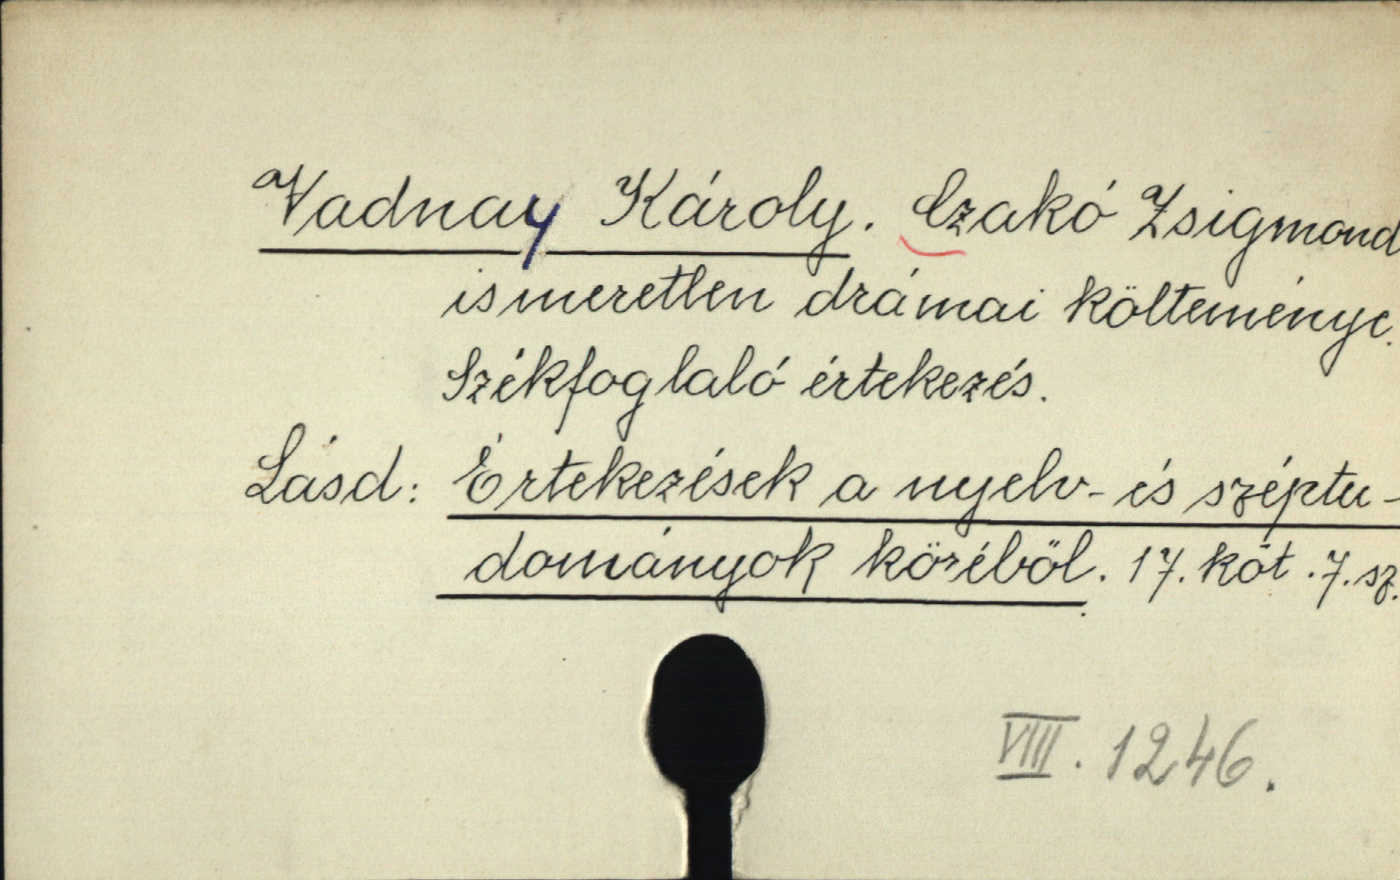 Vadnay Károly. Czakó Zsigmond
ismeretlen drámai költeménye.
Székfoglaló értekezés.
Lásd: Értekezések a nyelv- és széptu-
dományok köréből. 17. köt. 7. sz.
VIII. 1246.